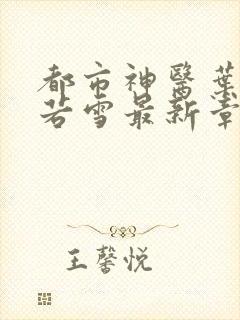 都市神醫葉
若雪最新章
王馨悦